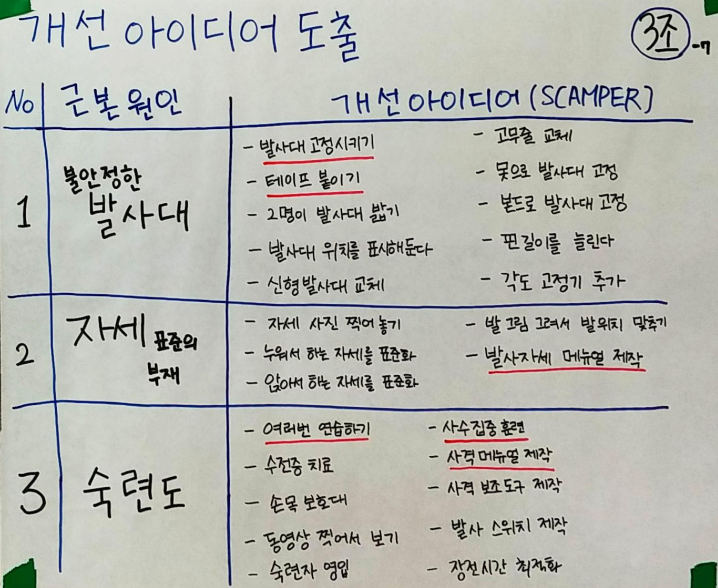 개선 아이디어 도출
3조-7
No 근본원인 개선아이디어 (SCAMPER)
1
불안정한
발사대
- 발사대 고정시키기
- 테이프 붙이기
- 2명이 발사대 밟기
- 발사대 위치를 표시해둔다
- 신형발사대 교체
- 고무줄 교체
- 못으로 발사대 고정
- 본드로 발사대 고정
- 핀길이를 늘린다
- 각도 고정기 추가
2
자세 표준의
부재
- 자세 사진 찍어 놓기
- 누워서 하는 자세를 표준화
- 앉아서 하는 자세를 표준화
- 발 그림 그려서 발위치 맞추기
- 발사자세 메뉴얼 제작
3
숙련도
- 여러번 연습하기
- 수전증 치료
- 손목 보호대
- 동영상 찍어서 보기
- 숙련자 영입
- 사수집중훈련
- 사격메뉴얼 제작
- 사격 보조도구 제작
- 발사 스위치 제작
- 장전시간 최적화